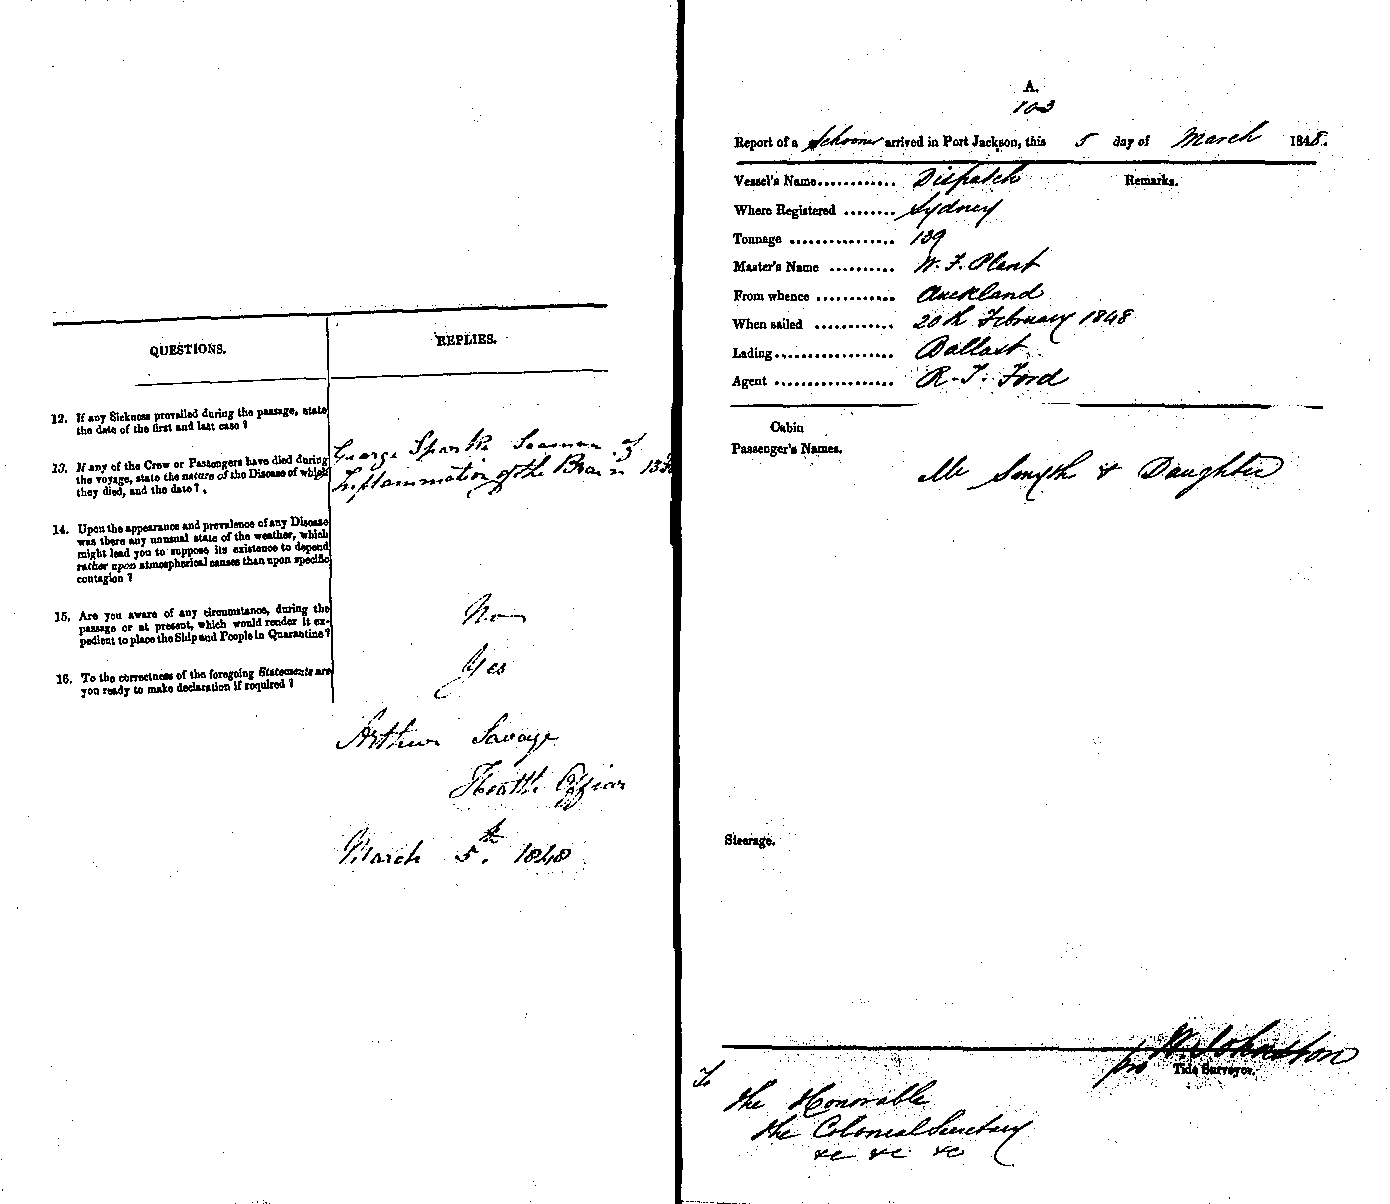 QUESTIONS.
REPLIES.
12. If any Sickness prevailed during the passage, state
the date of the first and last case?
13. If any of the Crew or Passengers have died during
the voyage, state the nature of the Disease of which
they died, and the date?
George Spark Seaman of
Inflammation of the Brain
14. Upon the appearance and prevalence of any Disease
was there any unusual state of the weather, which
might lead you to suppose its existence to depend
rather upon atmospherical causes than upon specific
contagion?
15. Are you aware of any circumstance, during the
passage or at present, which would render it ex-
pedient to place the Ship and People in Quarantine?
No
16. To the correctness of the foregoing Statements are
you ready to make declaration if required?
Yes
Arthur Savage
Health Officer
March 5th. 1848
A.
103
Report of a Schooner arrived in Port Jackson, this 5 day of March 1848.
Vessel's Name............ Dispatch
Remarks.
Where Registered ........ Sydney
Tonnage ................ 139
Master's Name .......... W. F. Plant
From whence ............ Auckland
When sailed ............ 20th February 1848
Lading.................. Ballast
Agent .................. R. T. Ford
Cabin
Passenger's Names.
Mr Smyth & Daughter
Steerage.
pro W. Johnston
Tide Surveyor.
To
the Honorable
the Colonial Secretary
&c &c &c